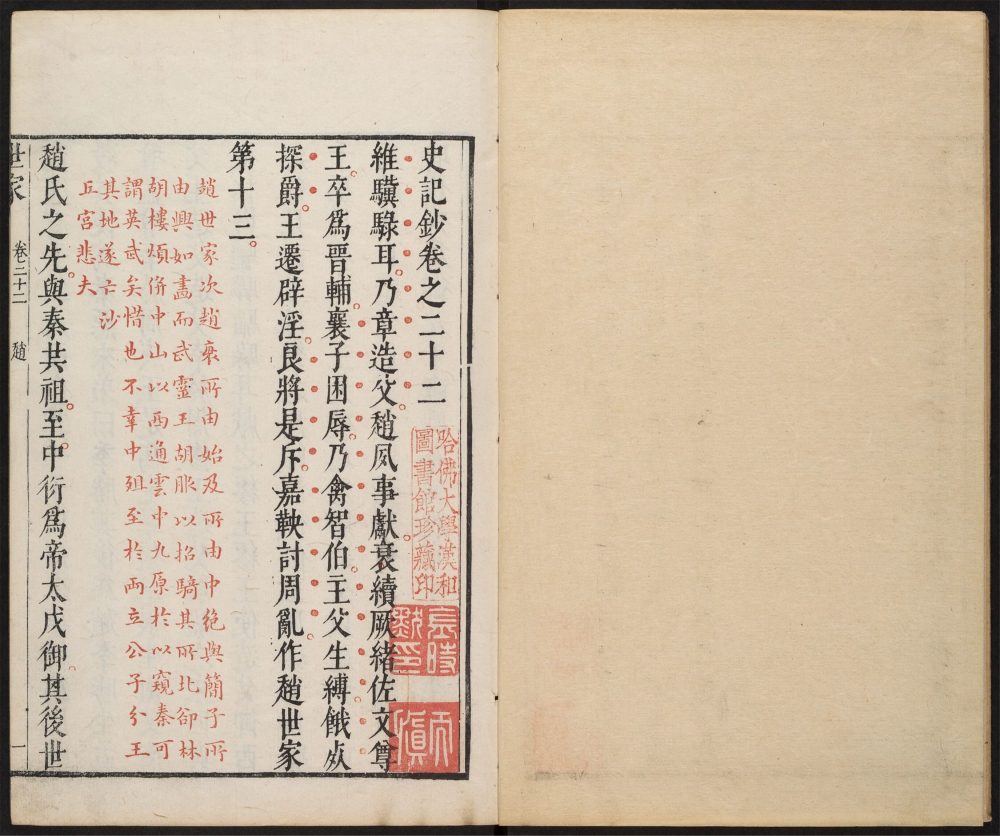 史記鈔卷之二十二
維驥騄耳乃章造父趙夙事獻衰續厥緒佐文尊
王卒為晉輔襄子困辱乃禽智伯主父生縛餓死
探爵王遷辟淫良將是斥嘉鞅討周亂作趙世家
第十三
趙世家次趙衰所由始及所由中絕與簡子所
由興如畫而武靈王胡服以招騎其所北卻林
胡樓煩併中山以西通雲中九原於以窺秦可
謂英武矣惜也不幸中殂至於兩立公子分王
其地遂亡沙
丘宮悲夫
趙氏之先與秦共祖至中衍為帝太戊御其後世
世家
卷二十二
趙
一
哈佛大學漢和
圖書館珍藏印